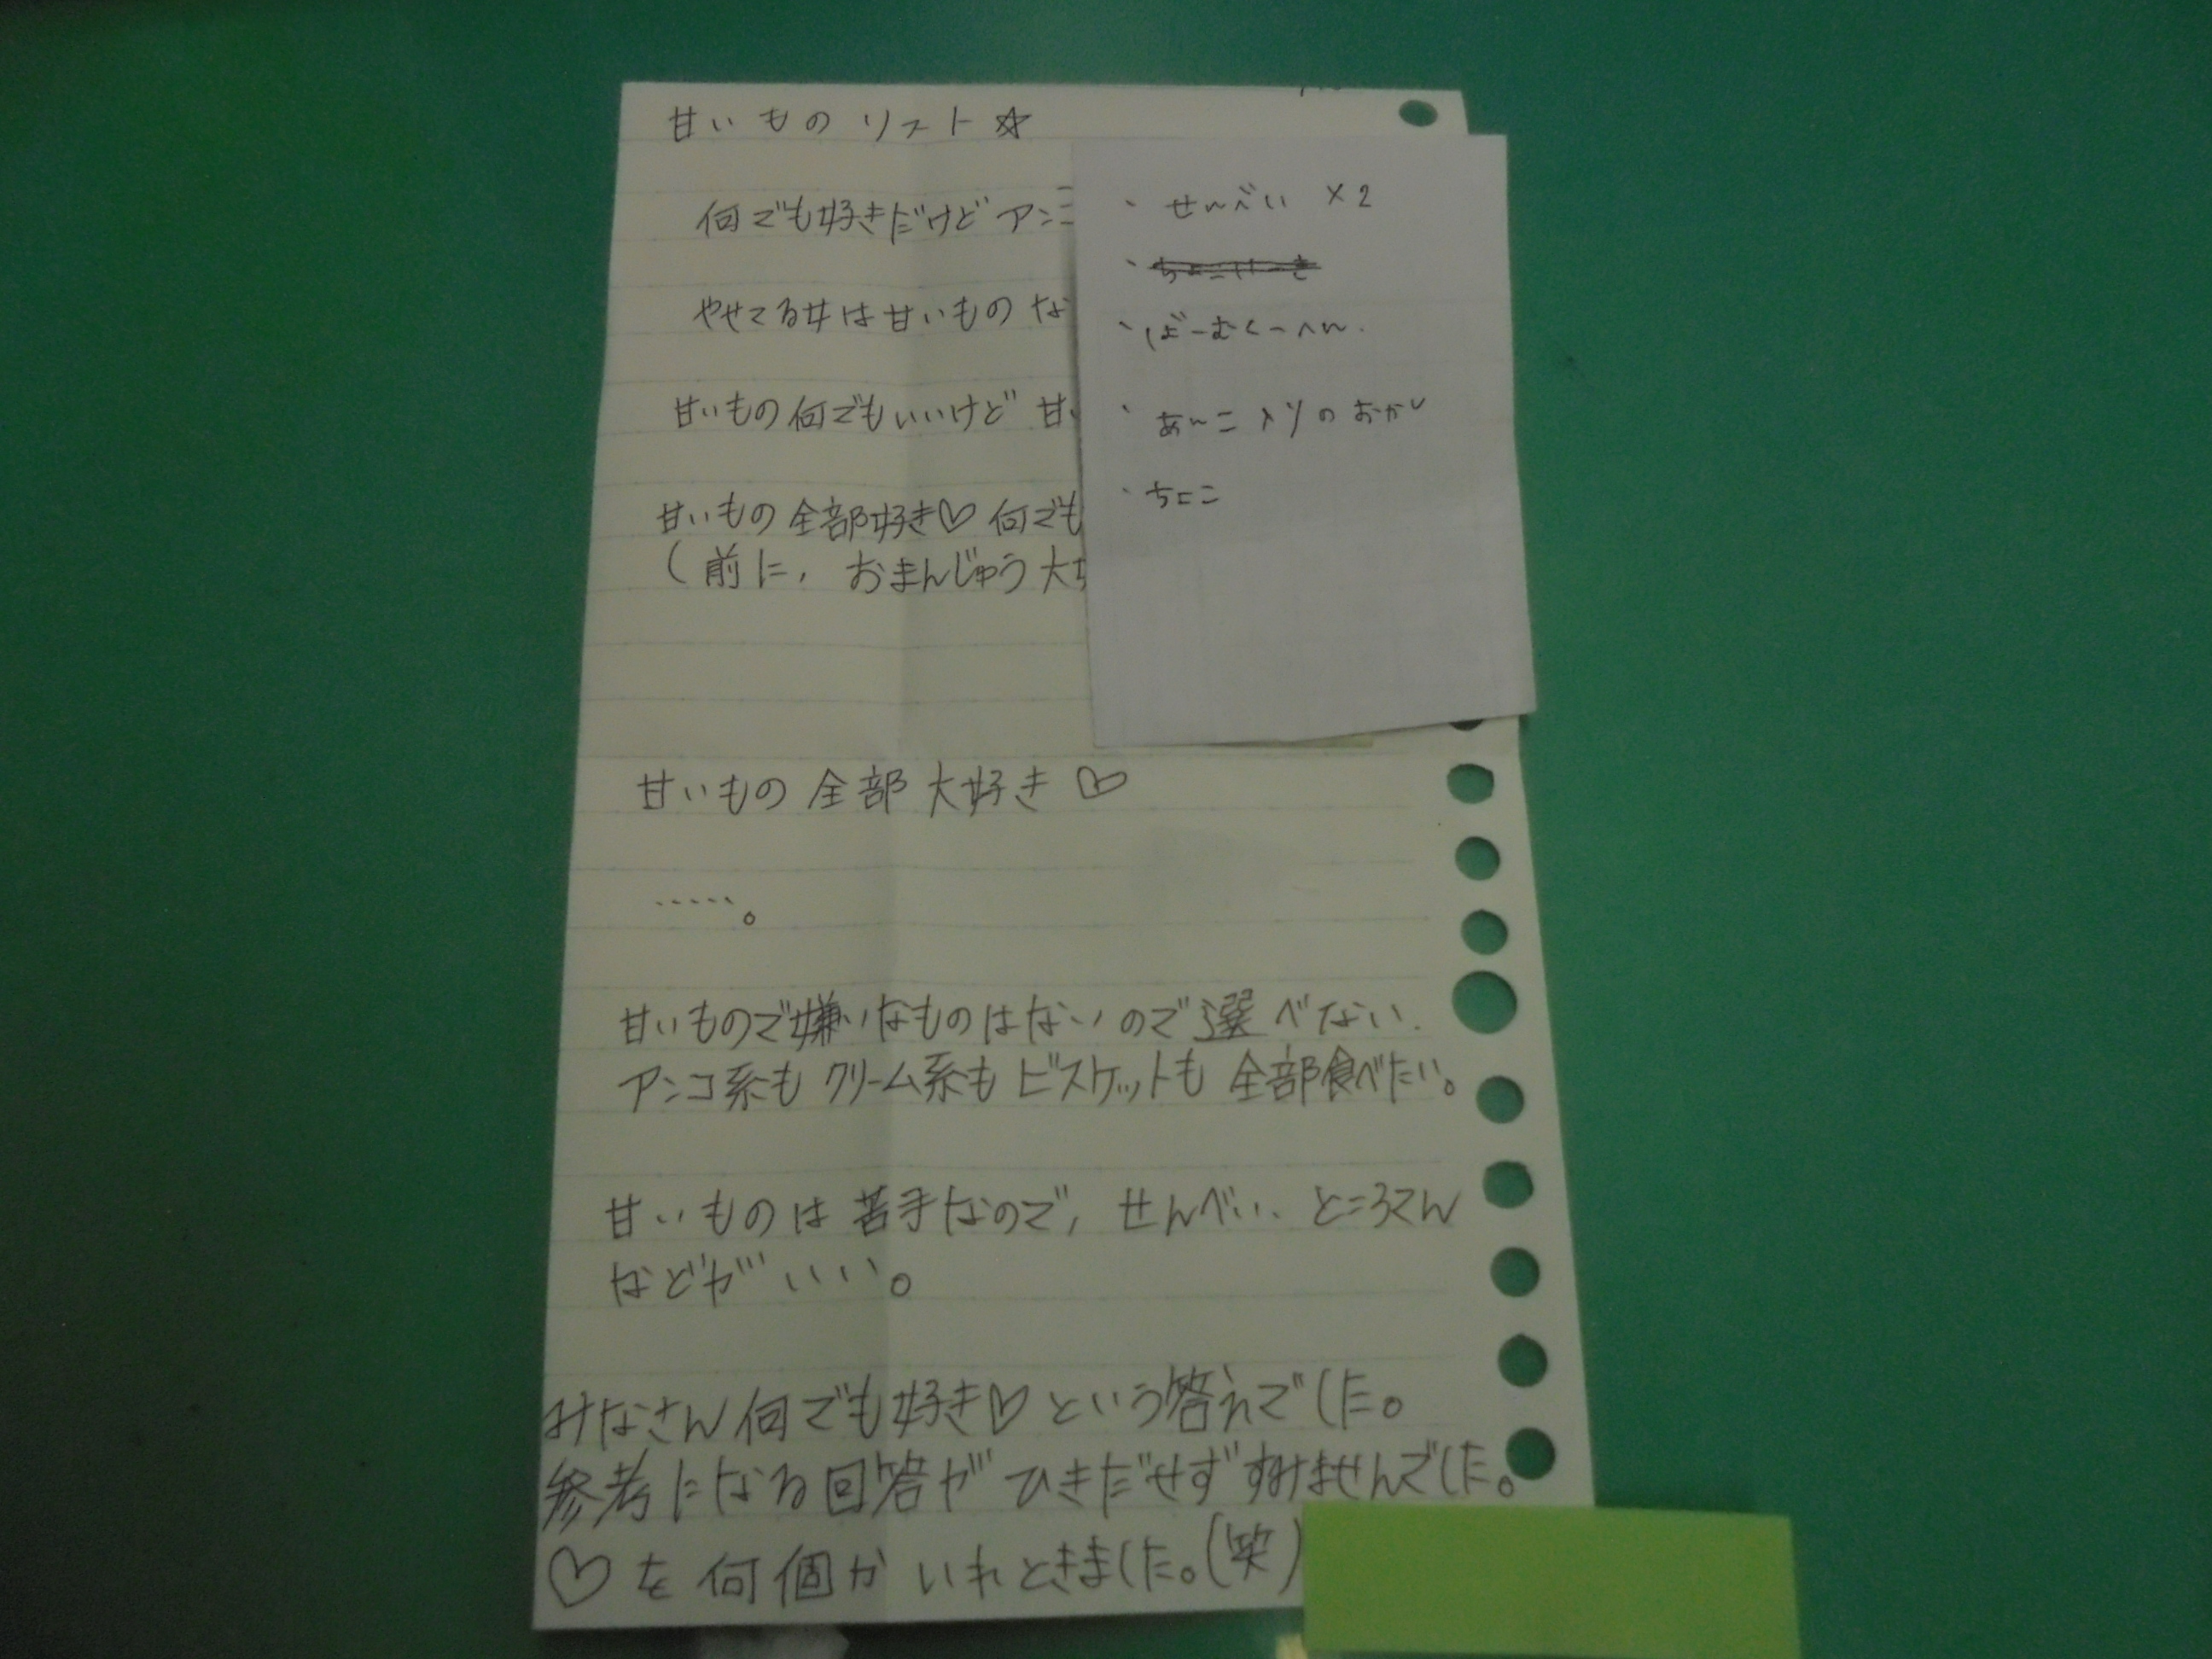 甘いものリスト☆
何でも好きだけどアンコ
やせてる女は甘いものな
甘いもの何でもいいけど甘
甘いもの全部好き♡何でも
(前に、おまんじゅう大
甘いもの全部大好き♡
‥‥‥。
甘いもので嫌いなものはないので選べない.
アンコ系もクリーム系もビスケットも全部食べたい。
甘いものは苦手なので、せんべい、ところてん
などがいい。
みなさん何でも好き♡という答えでした。
参考になる回答がひきだせずすみませんでした。
♡を何個かいれときました。(笑)
・せんべい ×2
・ばーむくーへん.
・あんこ入りのおかし
・ちょこ